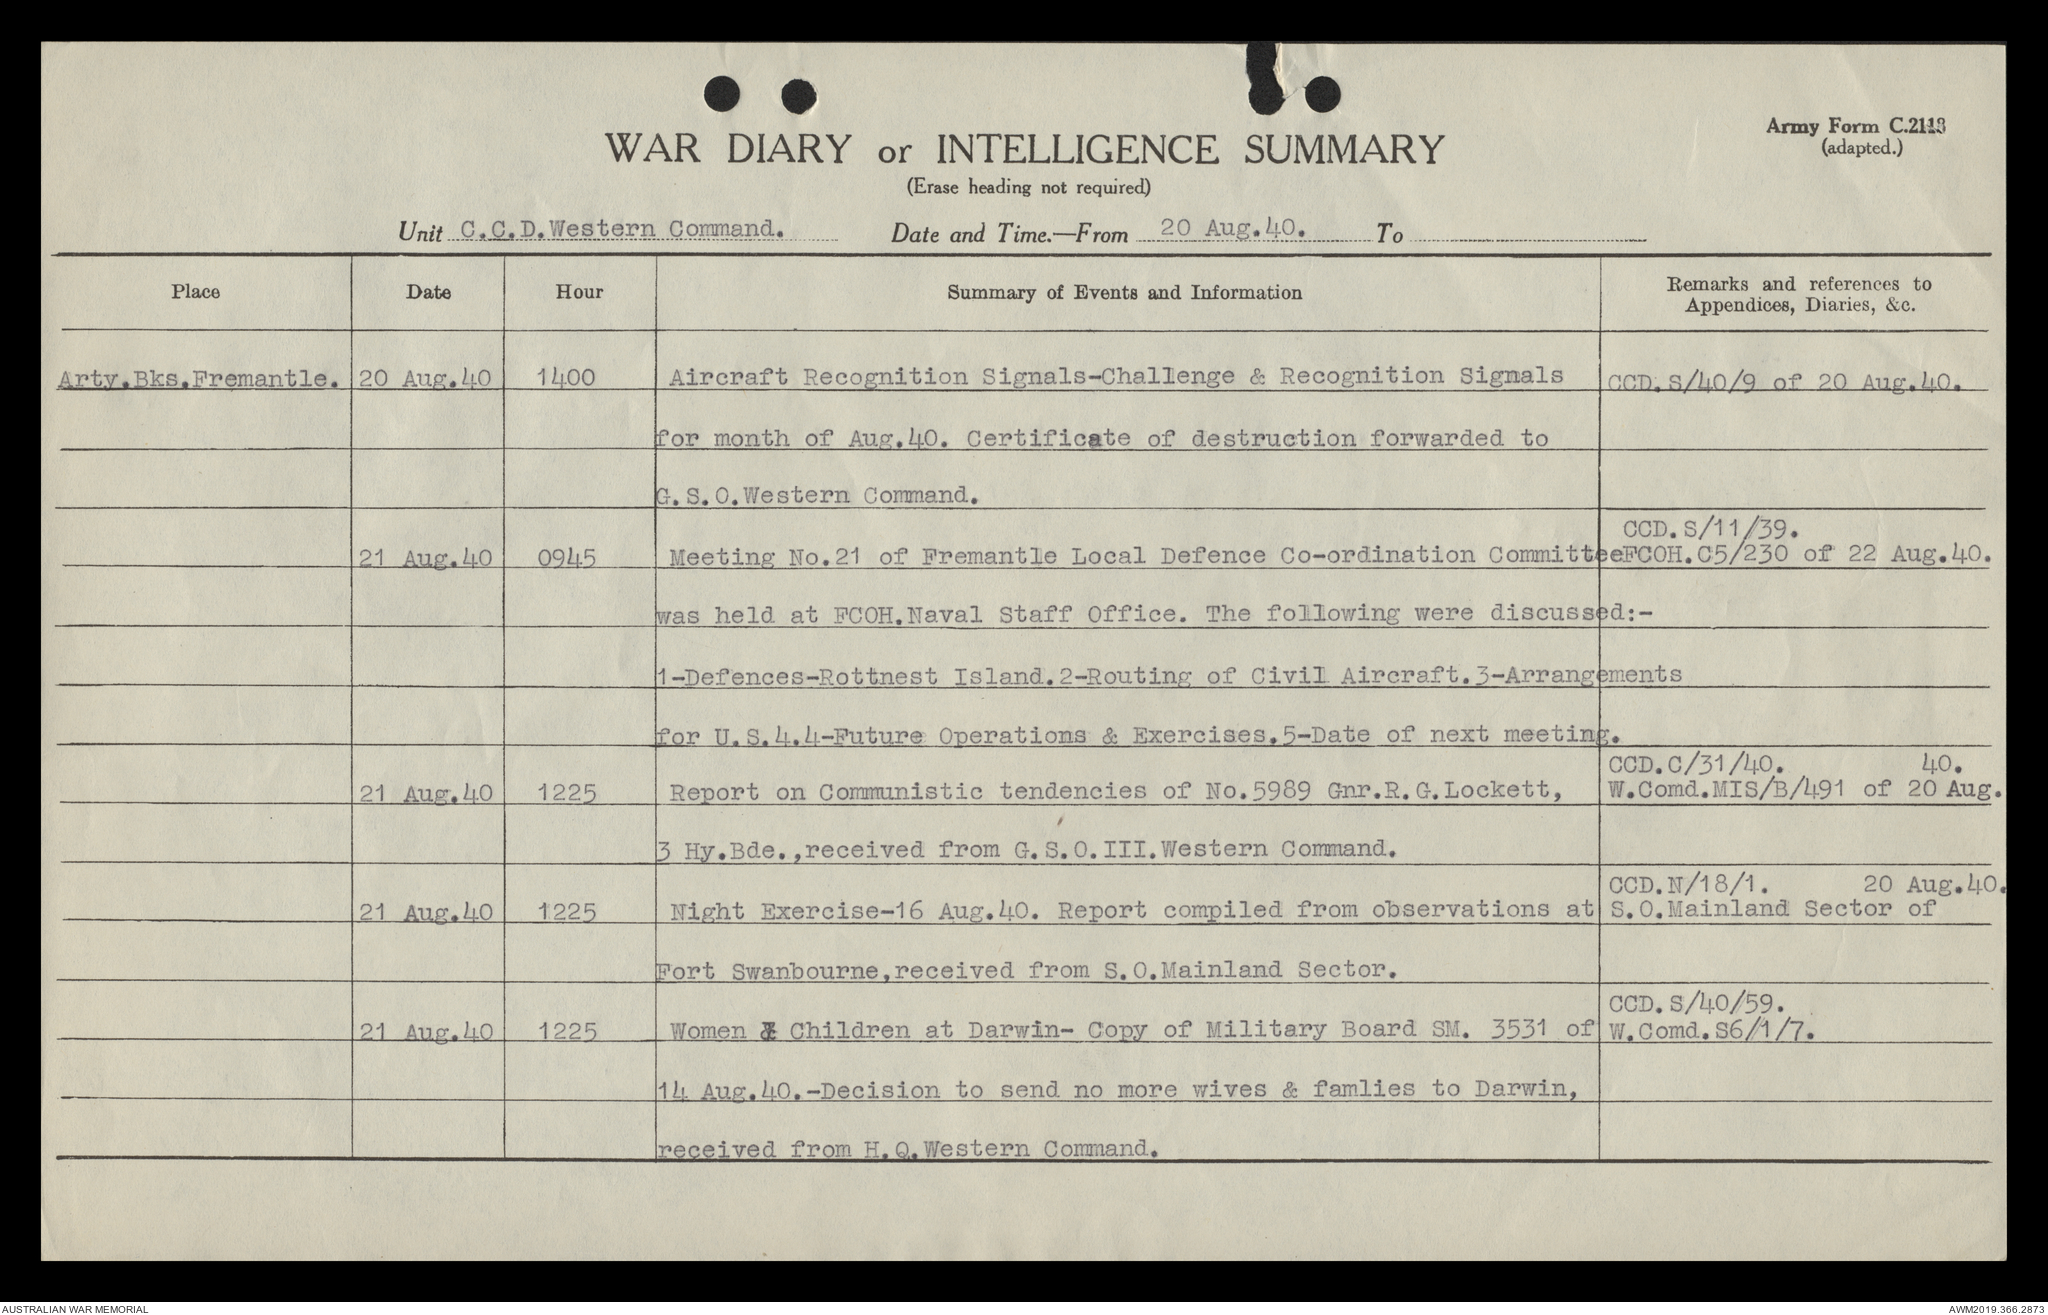 WAR DIARY or INTELLIGENCE SUMMARY
Army Form C.2118
(adapted.)
(Erase heading not required)
Unit C.C.D.Western Command. Date and Time.—From 20 Aug.40. To
Place Date Hour Summary of Events and Information Remarks and references to
Appendices, Diaries, &c.
Arty.Bks.Fremantle. 20 Aug.40 1400 Aircraft Recognition Signals-Challenge & Recognition Signals CCD.S/40/9 of 20 Aug.40.
for month of Aug.40. Certificate of destruction forwarded to
G.S.O.Western Command.
CCD.S/11/39.
21 Aug.40 0945 Meeting No.21 of Fremantle Local Defence Co-ordination Committee FCOH.C5/230 of 22 Aug.40.
was held at FCOH.Naval Staff Office. The following were discussed:-
1-Defences-Rottnest Island.2-Routing of Civil Aircraft.3-Arrangements
for U.S.4.4-Future Operations & Exercises.5-Date of next meeting.
CCD.C/31/40. 40.
21 Aug.40 1225 Report on Communistic tendencies of No.5989 Gnr.R.G.Lockett, W.Comd.MIS/B/491 of 20 Aug.
3 Hy.Bde.,received from G.S.O.III.Western Command.
CCD.N/18/1. 20 Aug.40.
21 Aug.40 1225 Night Exercise-16 Aug.40. Report compiled from observations at S.O.Mainland Sector of
Fort Swanbourne,received from S.O.Mainland Sector.
CCD.S/40/59.
21 Aug.40 1225 Women & Children at Darwin- Copy of Military Board SM. 3531 of W.Comd.S6/1/7.
14 Aug.40.-Decision to send no more wives & famlies to Darwin,
received from H.Q.Western Command.
AUSTRALIAN WAR MEMORIAL AWM2019.366.2873